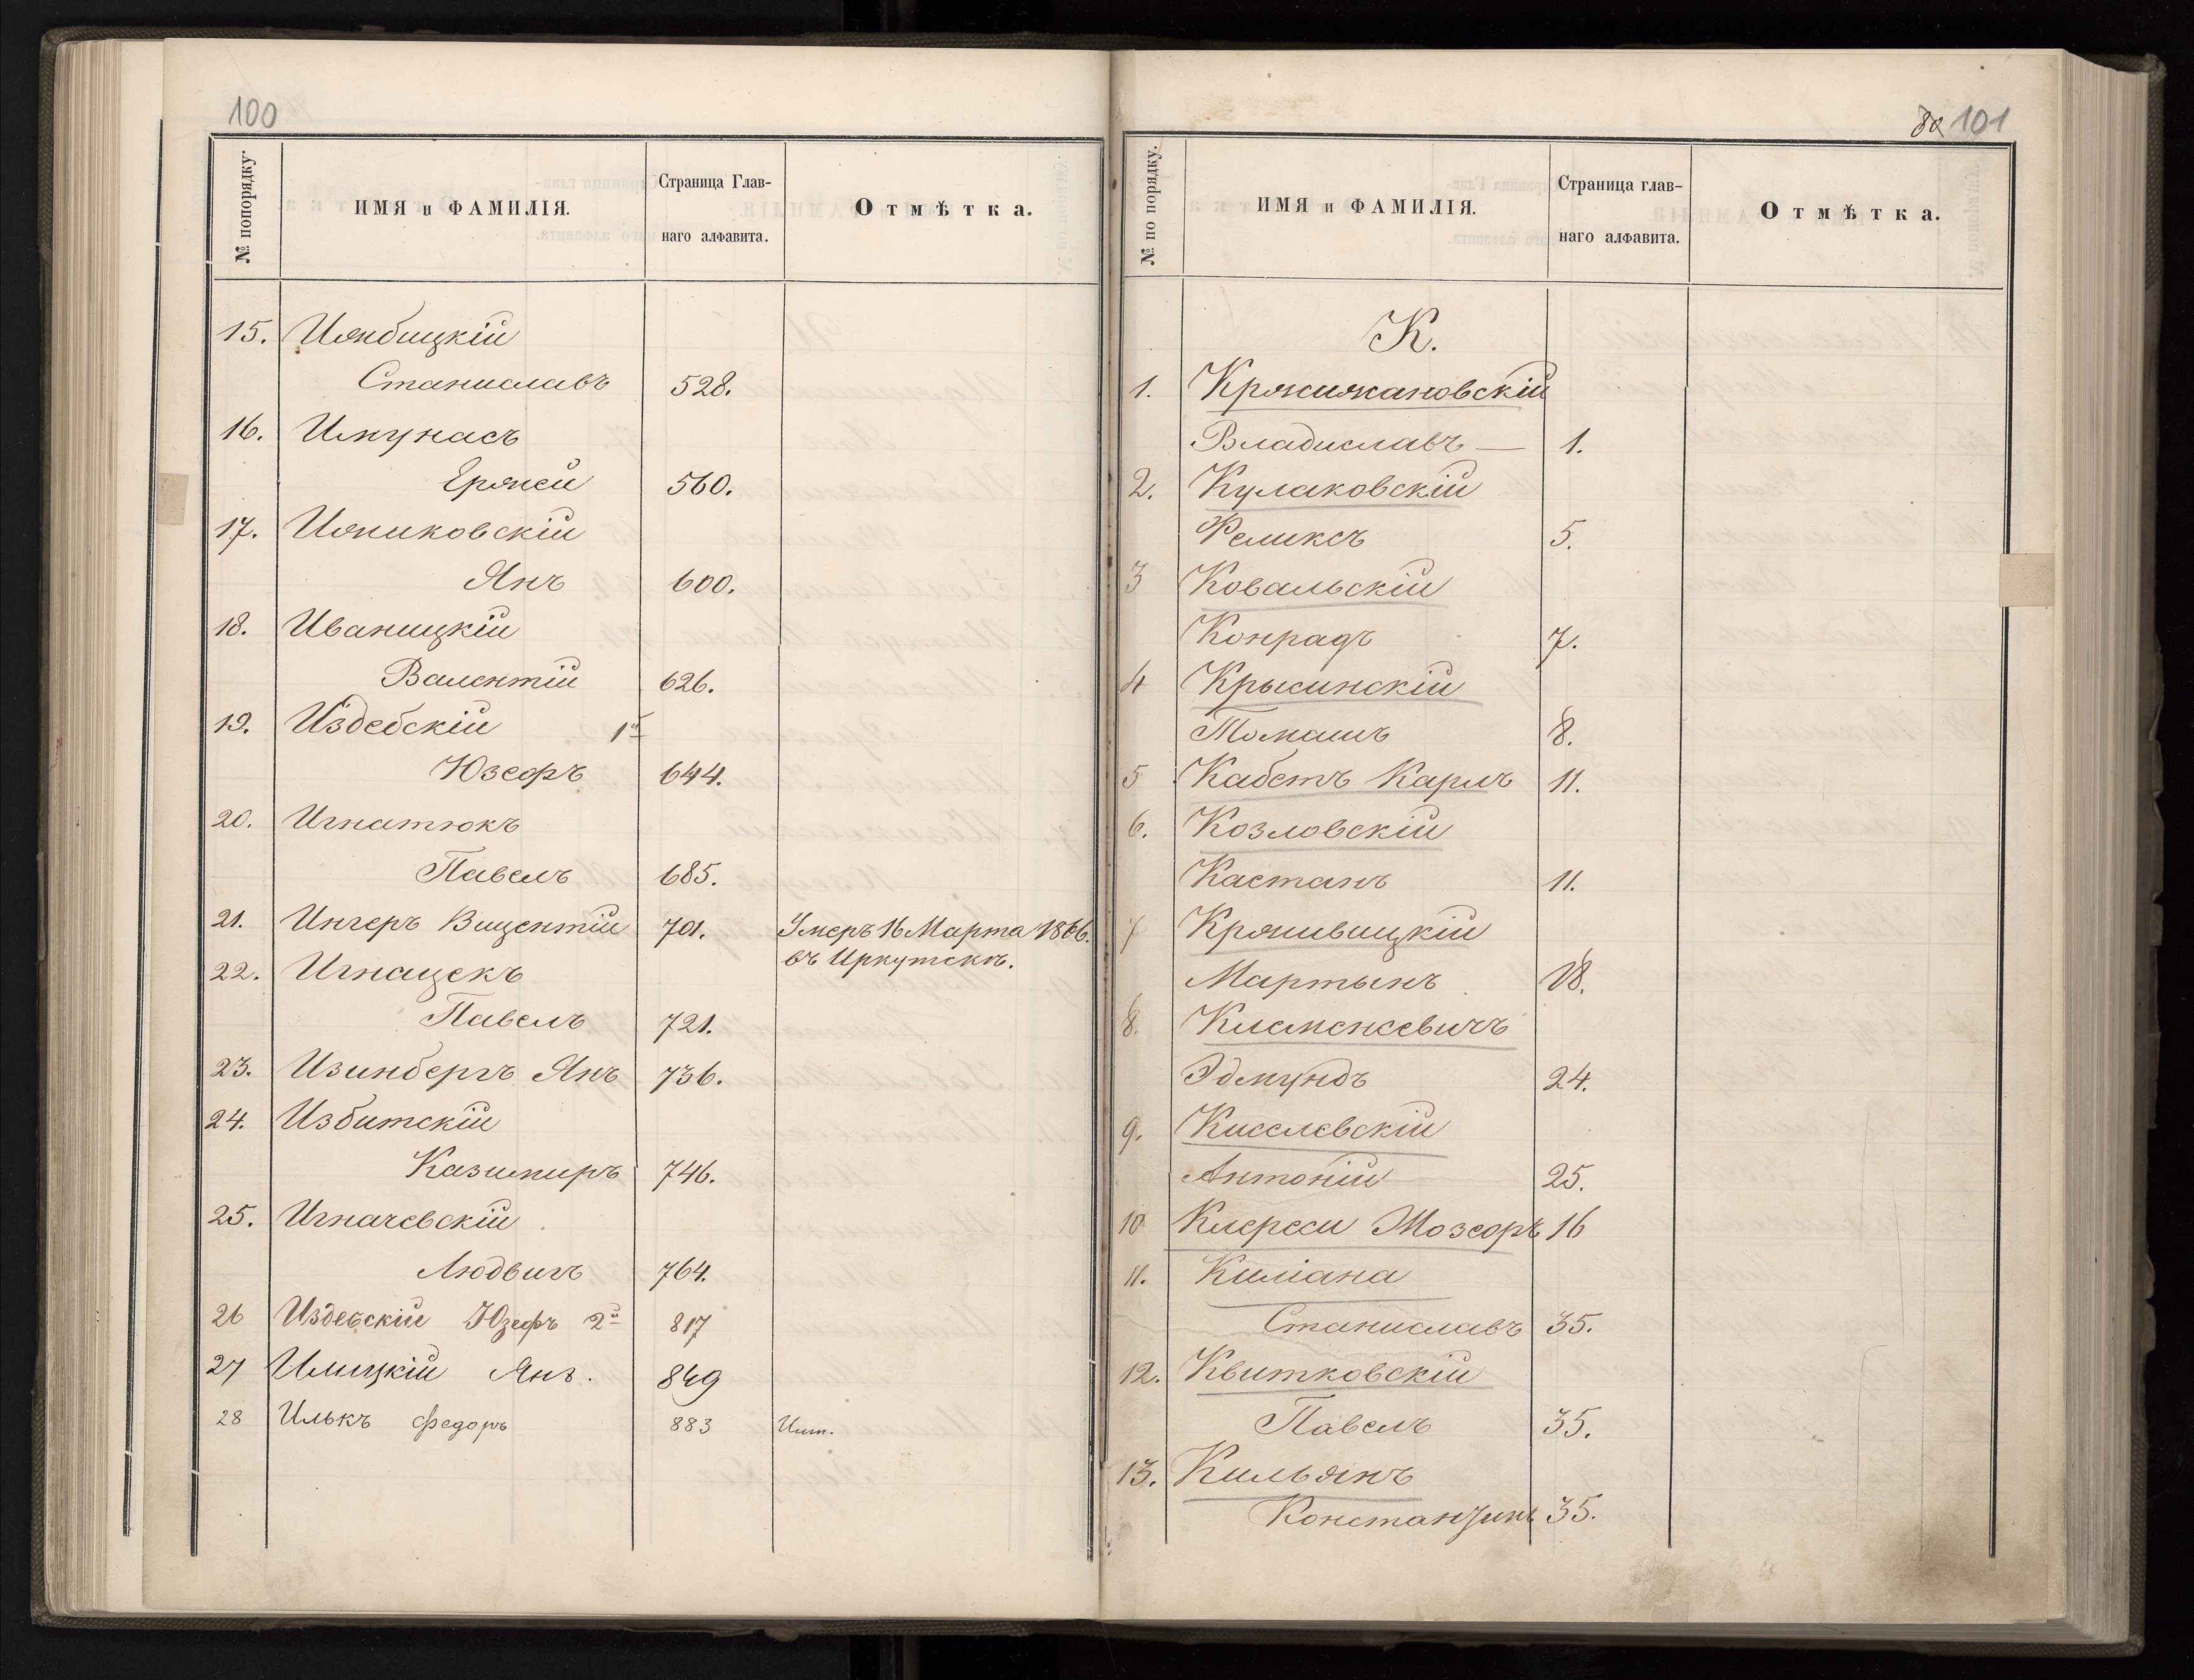 100
№ попорядку.
ИМЯ и ФАМИЛІЯ.
Страница Глав-
наго алфавита.
Отмѣтка.
15. Ижбицкій
Станиславъ 528.
16. Имунасъ
Ержей 560.
17. Ижиковскій
Янъ 600.
18. Иваницкій
Валентій 626.
19. Издебскій 1й
Юзефъ 644.
20. Игнатюкъ
Павелъ 685.
21. Ингеръ Вицентій 701. Умеръ 16 Марта 1866.
въ Иркутскѣ.
22. Игнацекъ
Павелъ 721.
23. Изинбергъ Янъ 736.
24. Избитскій
Казимиръ 746.
25. Игначевскій
Людвигъ 764.
26 Издебскій Юзефъ 2й 817
27 Илицкій Янъ. 849
28 Илькъ Федоръ 883 Инт.
101
№ по порядку.
ИМЯ и ФАМИЛІЯ.
Страница глав-
наго алфавита.
Отмѣтка.
К.
1. Кржижановскій
Владиславъ — 1.
2. Кулаковскій
Феликсъ 5.
3 Ковальскій
Конрадъ 7.
4 Крысинскій
Томашъ 8.
5 Кабетъ Карлъ 11.
6. Козловскій
Каетанъ 11.
7 Крживицкій
Мартынъ 18.
8. Клеменсевичъ
Эдмундъ 24.
9. Киселевскій
Антоній 25.
10 Клереси 16
11. Киліана
Станиславъ 35.
12. Квитковскій
Павелъ 35.
13. Кильянъ
Константинъ 35.